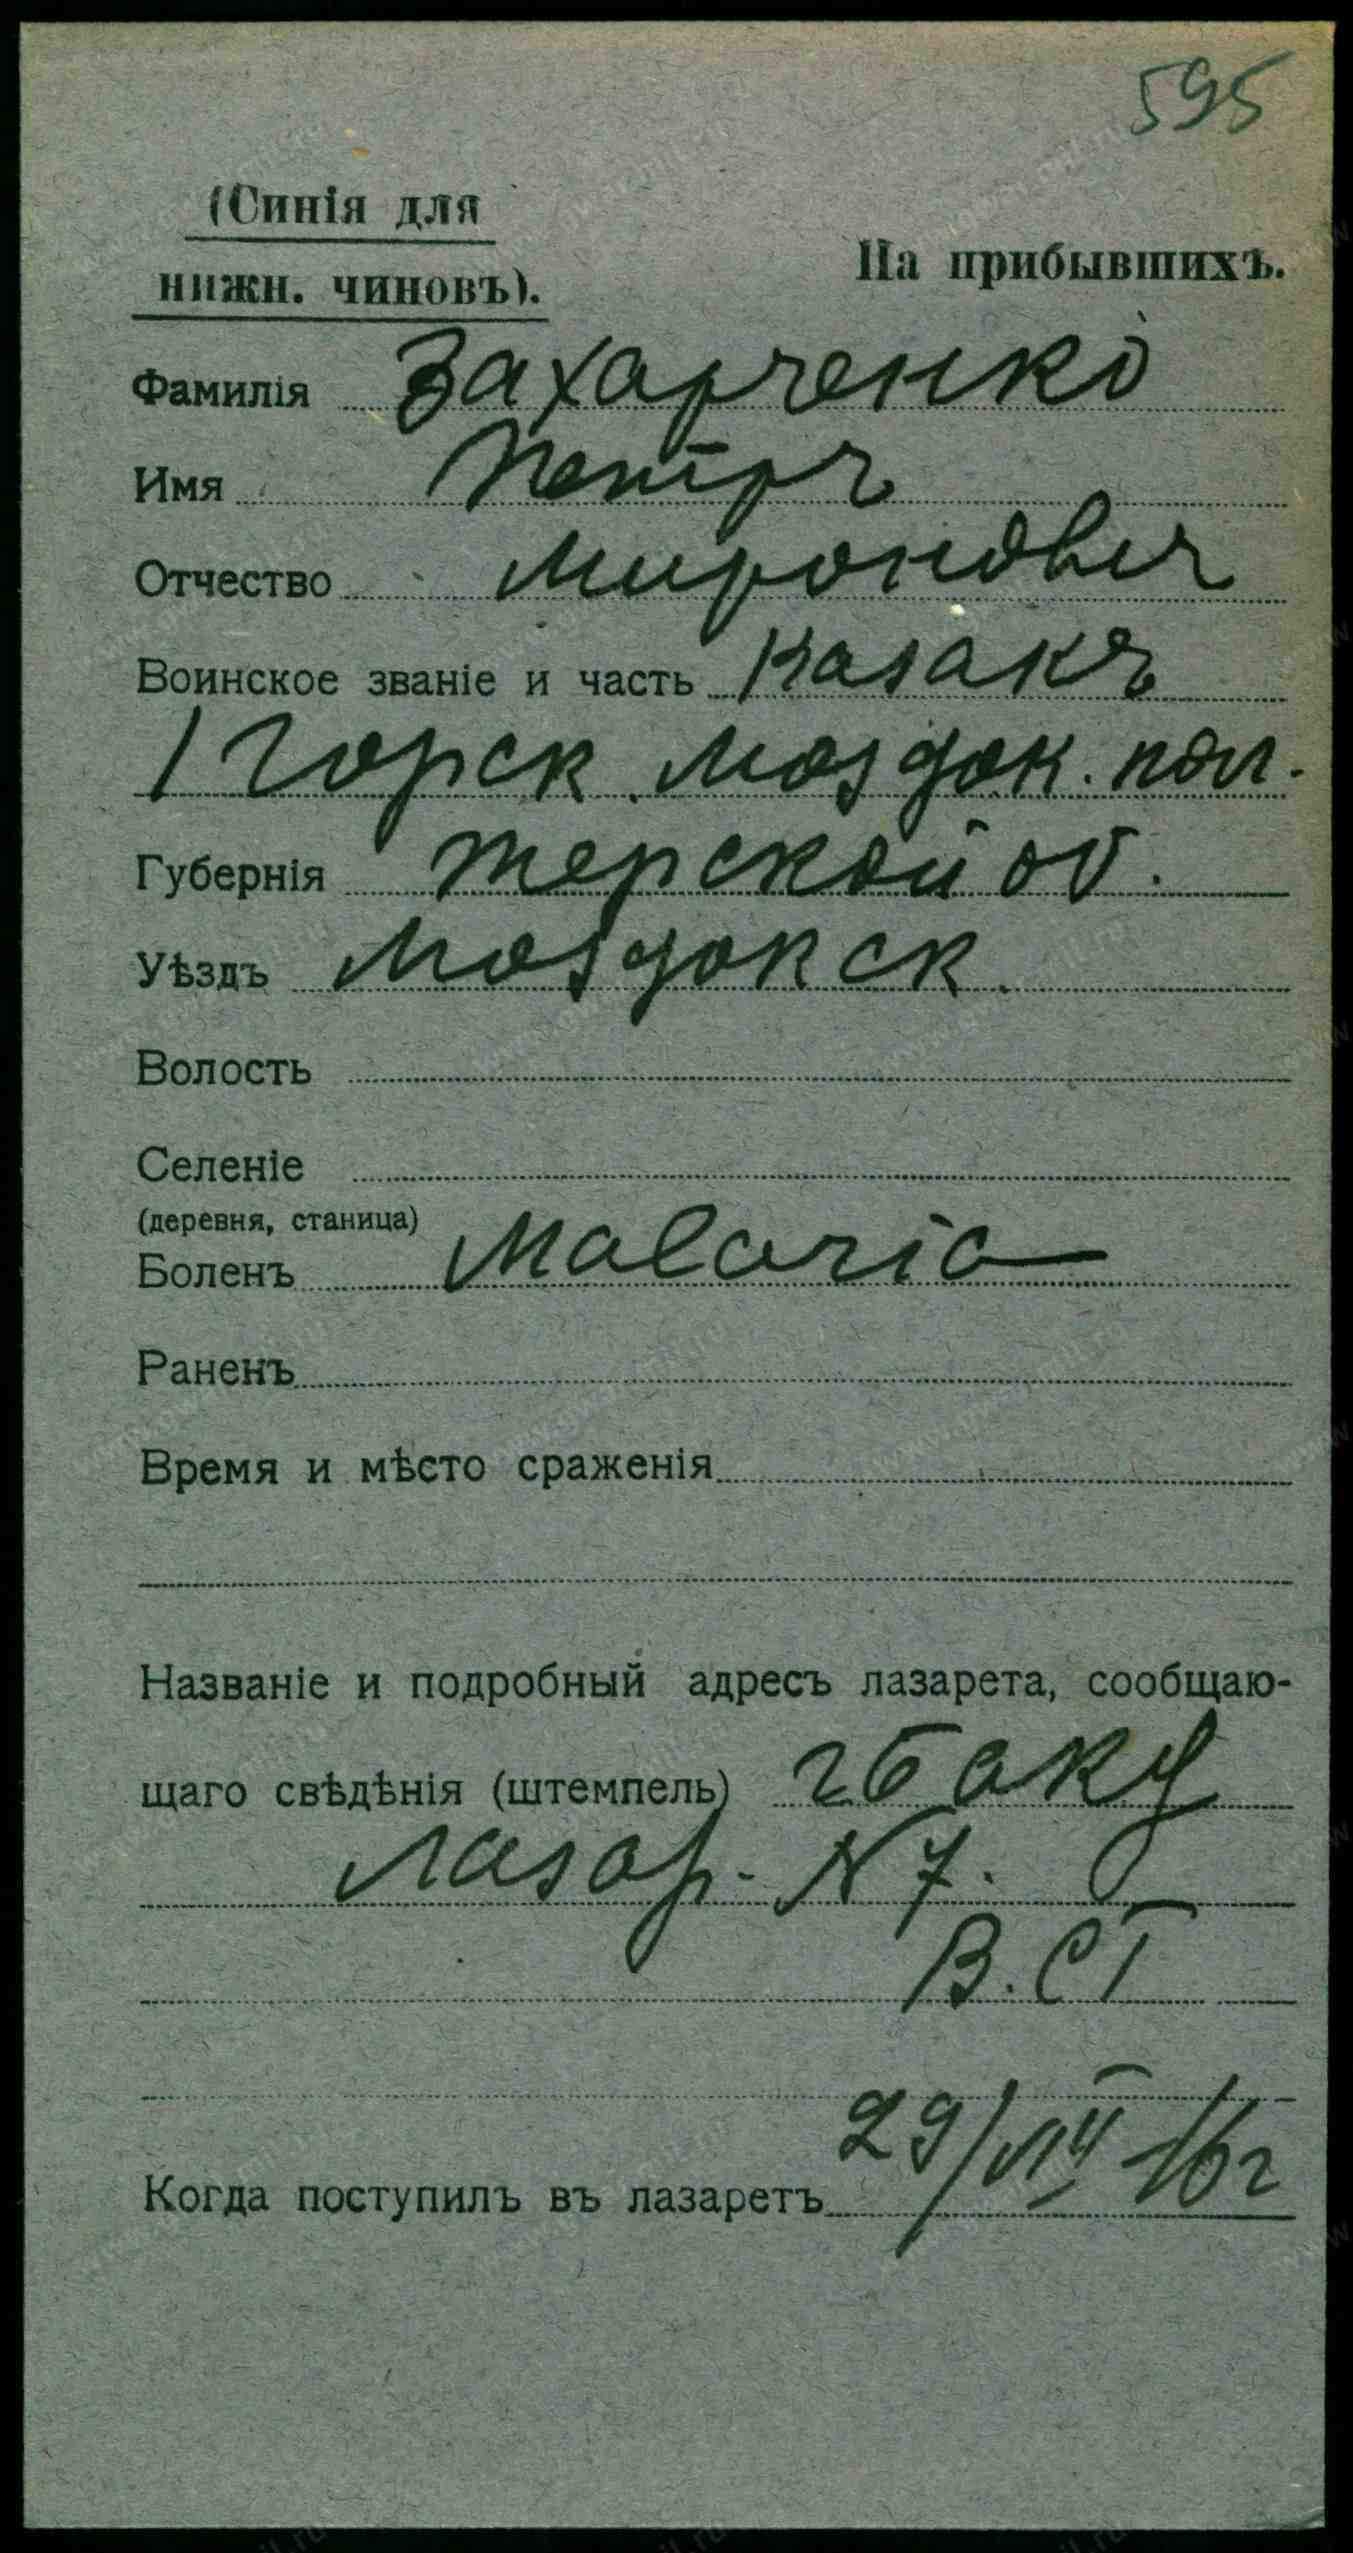 595
(Синія для
нижн. чиновъ).
На прибывшихъ.
Фамилія Захарченко
Имя Петръ
Отчество Миронович
Воинское званіе и часть Казакъ
1 Горск. Моздок. пол.
Губернія Терской об.
Уѣздъ Моздокск.
Волость
Селеніе
(деревня, станица)
Боленъ Malaria
Раненъ
Время и мѣсто сраженія
Названіе и подробный адресъ лазарета, сообщаю-
щаго свѣдѣнія (штемпель) г Баку
Лазар. N 7.
В. СГ
Когда поступилъ въ лазаретъ 29/VII 16 г